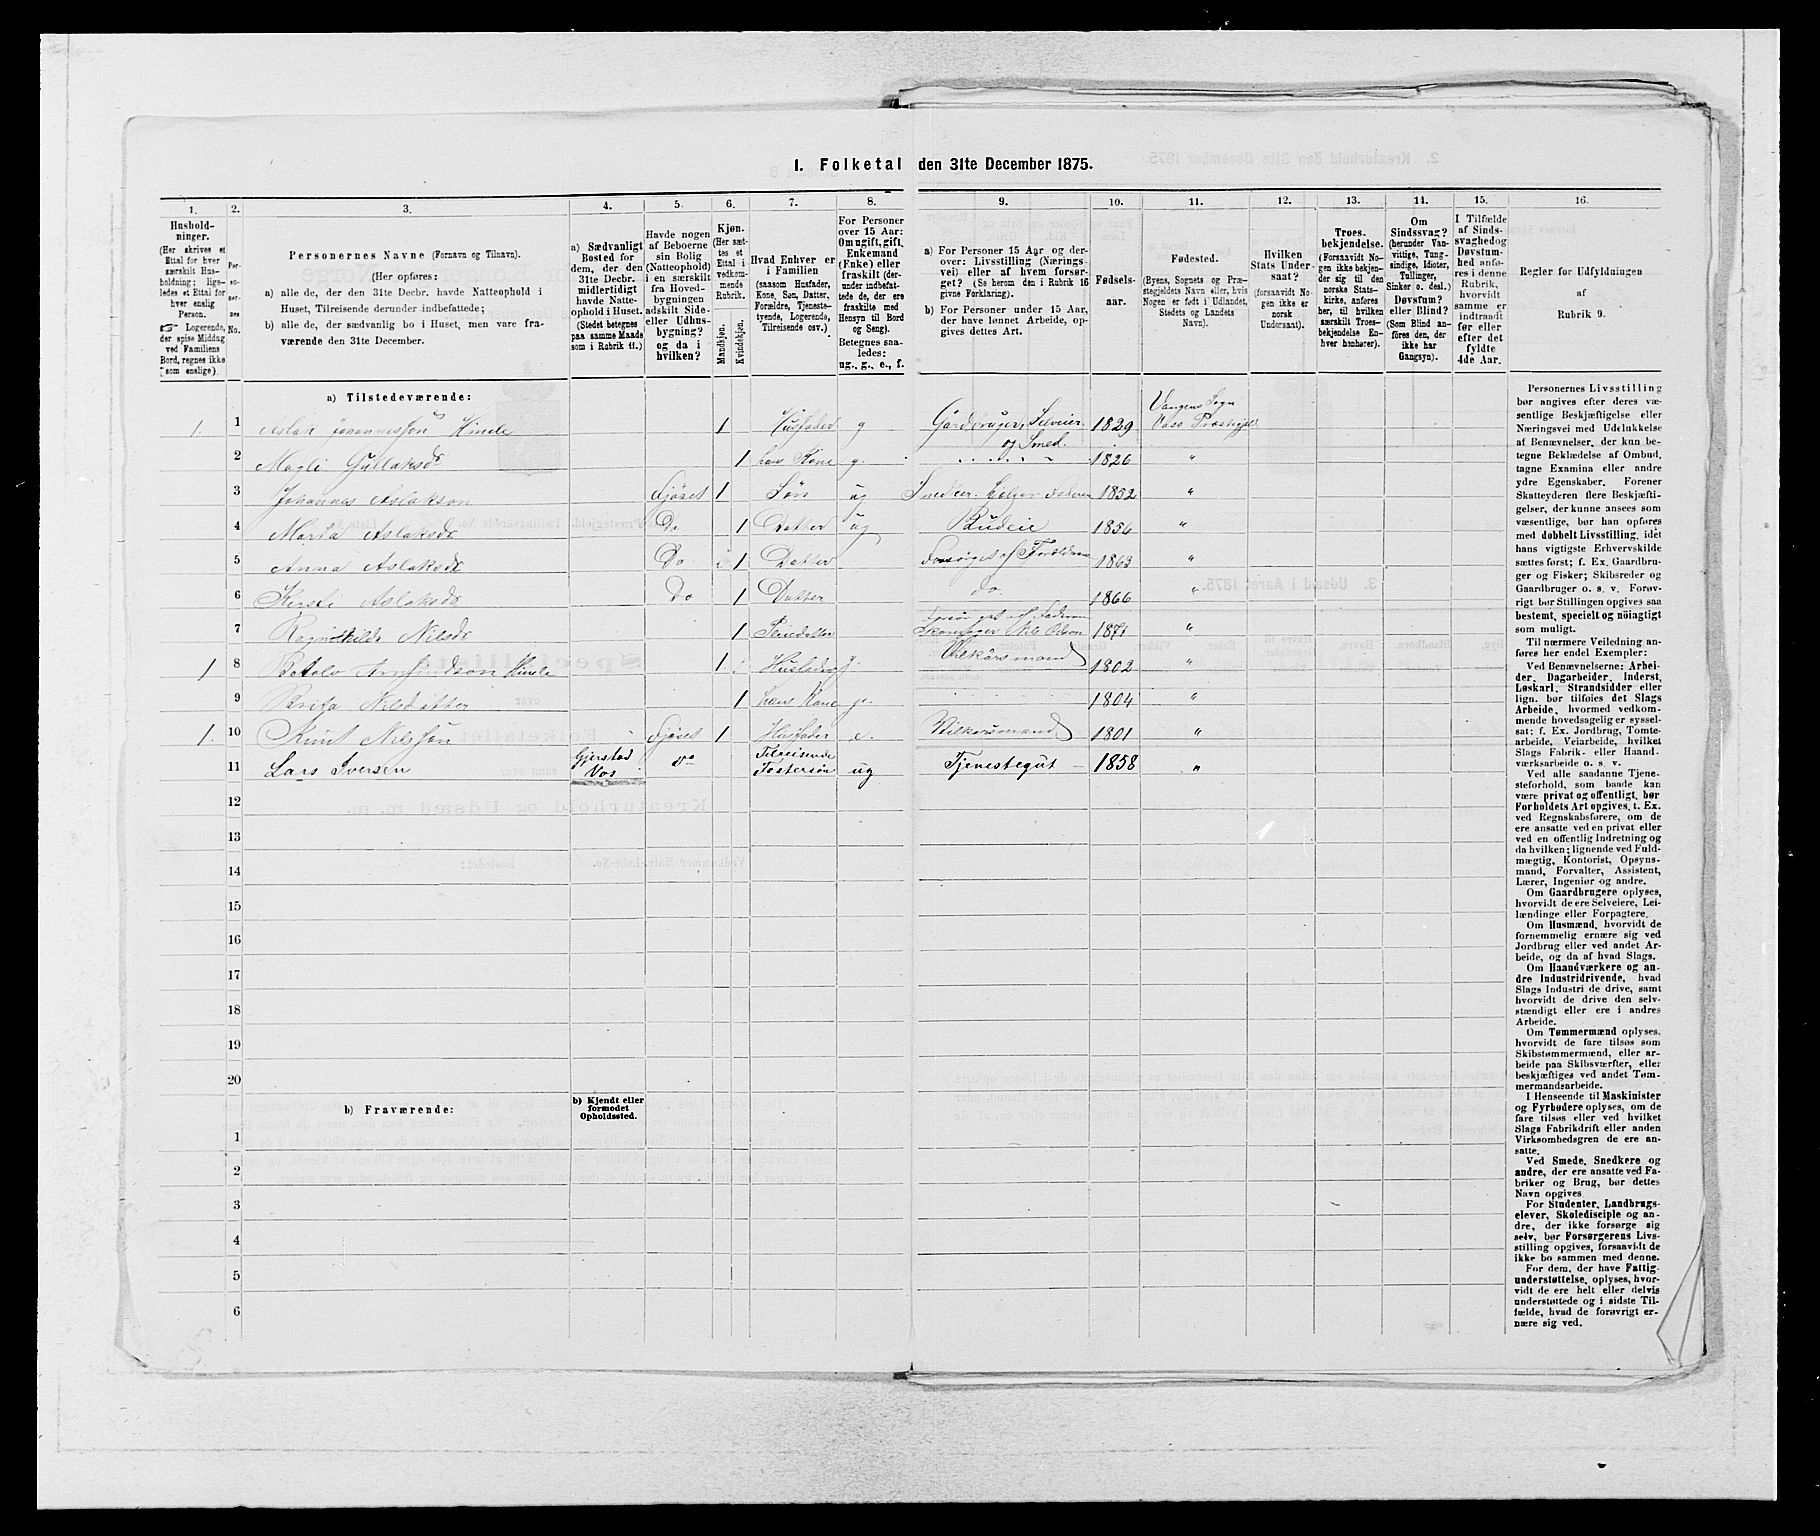 1. Folketal den 31te December 1875.
1. 2. 3. 4. 5. 6. 7. 8. 9. 10. 11. 12. 13. 14. 15. 16.
Hushold-
ninger.
(Her skrives et
Ettal for hver
særskilt Hus-
holdning; lige-
ledes et Ettal for
hver enslig
Person.
☞ Logerende,
der spise Middag
ved Familiens
Bord, regnes ikke
som enslige).
Per-
so-
ner-
nes
No.
Personernes Navne (Fornavn og Tilnavn).
(Her opføres:
a) alle de, der den 31te Decbr. havde Natteophold i
Huset, Tilreisende derunder indbefattede;
b) alle de, der sædvanlig bo i Huset, men vare fra-
værende den 31te December.
a) Sædvanligt
Bosted for
dem, der den
31te Decbr.
midlertidigt
havde Natte-
ophold i Huset.
(Stedet betegnes
paa samme Maade
som i Rubrik 11.)
Havde nogen
af Beboerne
sin Bolig
(Natteophold)
i en særskilt
fra Hoved-
bygningen
adskilt Side-
eller Udhus-
bygning?
og da i
hvilken?
Kjøn.
(Her sæt-
tes et
Ettal i
vedkom-
mende
Rubrik.
Mandkjøn.
Kvindekjøn.
Hvad Enhver er
i Familien
(saasom Husfader,
Kone, Søn, Datter,
Forældre, Tjeneste-
tyende, Logerende,
Tilreisende osv.)
For Personer
over 15 Aar:
Om ugift, gift,
Enkemand
(Enke) eller
fraskilt (der-
under indbefat-
tede de, der ere
fraskilte med
Hensyn til Bord
og Seng).
Betegnes saa-
ledes:
ug., g., e., f.
a) For Personer 15 Aar og der-
over: Livsstilling (Nærings-
vei) eller af hvem forsør-
get? (Se herom den i Rubrik 16
givne Forklaring).
b) For Personer under 15 Aar,
der have lønnet Arbeide, op-
gives dettes Art.
Fødsels-
aar.
Fødested.
(Byens, Sognets og Præ-
stegjeldets Navn eller, hvis
Nogen er født i Udlandet,
Stedets og Landets
Navn).
Hvilken
Stats Under-
saat?
(forsaavidt No-
gen ikke er
norsk
Undersaat).
Troes-
bekjendelse.
(Forsaavidt No-
gen ikke bekjen-
der sig til den
norske Stats-
kirke, anføres
her, til hvilken
særskilt Troes-
bekjendelse En-
hver henhører).
Om
Sindssvag?
(herunder Van-
vittige, Tung-
sindige, Idioter,
Tullinger,
Sinker o. desl.)
Døvstum?
eller Blind?
(Som Blind an-
føres den, der
ikke har
Gangsyn).
I Tilfælde
af Sinds-
svaghed og
Døvstum-
hed anfø-
res i denne
Rubrik,
hvorvidt
samme er
indtraadt
før eller
efter det
fyldte
4de Aar.
Regler for Udfyldningen
af
Rubrik 9.
a) Tilstedeværende:
1. 1 Aslak Johannessøn Himle 1 Husfader g Gårdbruger, Selveier og Smed. 1829 Vangens Sogn Voss Præstegjeld
2 Magli Gullaksdr 1 hans Kone g. 1826 "
3 Johannes Aslakson Fjøset 1 Søn ug 1852 "
4 Marta Aslaksdr Do 1 Datter ug Budeie 1856 "
5 Anna Aslaksdr Do 1 Datter Forsørget af Forældrene 1863 "
6 Kirsti Aslaksdr Do 1 Datter do. 1866 "
7 Nilsdr 1 Nils Odson 1871 "
1 8 Himle 1 Husfader g. Vilkårsmand 1802 "
9 Brita Nilsdatter 1 hans Kone g. 1804 "
1. 10 Knut Nilssøn Fjøset 1 Husfader e. Vilkårsmand 1801 "
11 Lars Iversen Gjerstad Vos Do Tilreisende Fostersøn ug Tjenestegut 1858 "
12
13
14
15
16
17
18
19
20
b) Fraværende:
b) Kjendt eller
formodet
Opholdssted.
1
2
3
4
5
6
Personernes Livsstilling
bør angives efter deres væ-
sentlige Beskjæftigelse eller
Næringsvei med Udelukkelse
af Benævnelser, der kun be-
tegne Beklædelse af Ombud,
tagne Examina eller andre
ydre Egenskaber. Forener
Skatteyderen flere Beskjæfti-
gelser, der kunne ansees som
væsentlige, bør han opføres
med dobbelt Livsstilling, idet
hans vigtigste Erhvervskilde
sættes først; f. Ex. Gaardbru-
ger og Fisker; Skibsreder og
Gaardbruger o. s. v. Forøv-
rigt bør Stillingen opgives saa
bestemt, specielt og nøiagtigt
som muligt.
Til nærmere Veiledning an-
føres her endel Exempler:
Ved Benævnelserne: Arbei-
der, Dagarbeider, Inderst,
Løskarl, Strandsidder eller
lign. bør tilføies det Slags
Arbeide, hvormed vedkom-
mende hovedsagelig er syssel-
sat: f. Ex. Jordbrug, Tomte-
arbeide, Veiarbeide, hvilket
Slags Fabrik- eller Haand-
værksarbeide o. s. v.
Ved alle saadanne Tjene-
steforhold, som baade kan
være privat og offentligt, bør
Forholdets Art opgives, t. Ex.
ved Regnskabsførere, om de
ere ansatte ved en privat eller
ved en offentlig Indretning og
da hvilken; lignende ved Fuld-
mægtig, Kontorist, Opsyns-
mand, Forvalter, Assistent,
Lærer, Ingeniør og andre.
Om Gaardbrugere oplyses,
hvorvidt de ere Selveiere, Lei-
lændinge eller Forpagtere.
Om Husmænd, hvorvidt de
fornemmelig ernære sig ved
Jordbrug eller ved andet Ar-
beide, og da af hvad Slags.
Om Haandværkere og an-
dre Industridrivende, hvad
Slags Industri de drive, samt
hvorvidt de drive den selv-
stændigt eller ere i andres
Arbeide.
Om Tømmermænd oplyses,
hvorvidt de fare tilsøs som
Skibstømmermænd, eller ar-
beide paa Skibsværfter, eller
beskjæftiges ved andet Tøm-
mermandsarbeide.
I Henseende til Maskinister
og Fyrbødere oplyses, om de
fare tilsøs eller ved hvilket
Slags Fabrikdrift eller anden
Virksomhedsgren de ere an-
satte.
Ved Smede, Snedkere og
andre, der ere ansatte ved Fa-
briker og Brug, bør dettes
Navn opgives
For Studenter, Landbrugs-
elever, Skoledisciple og an-
dre, der ikke forsørge sig
selv, bør Forsørgerens Livs-
stilling opgives, forsaavidt de
ikke bo sammen med denne.
For dem, der have Fattig-
understøttelse, oplyses, hvor-
vidt de ere helt eller delvis
understøttede og i sidste Til-
fælde, hvad de forøvrigt er-
nære sig ved.